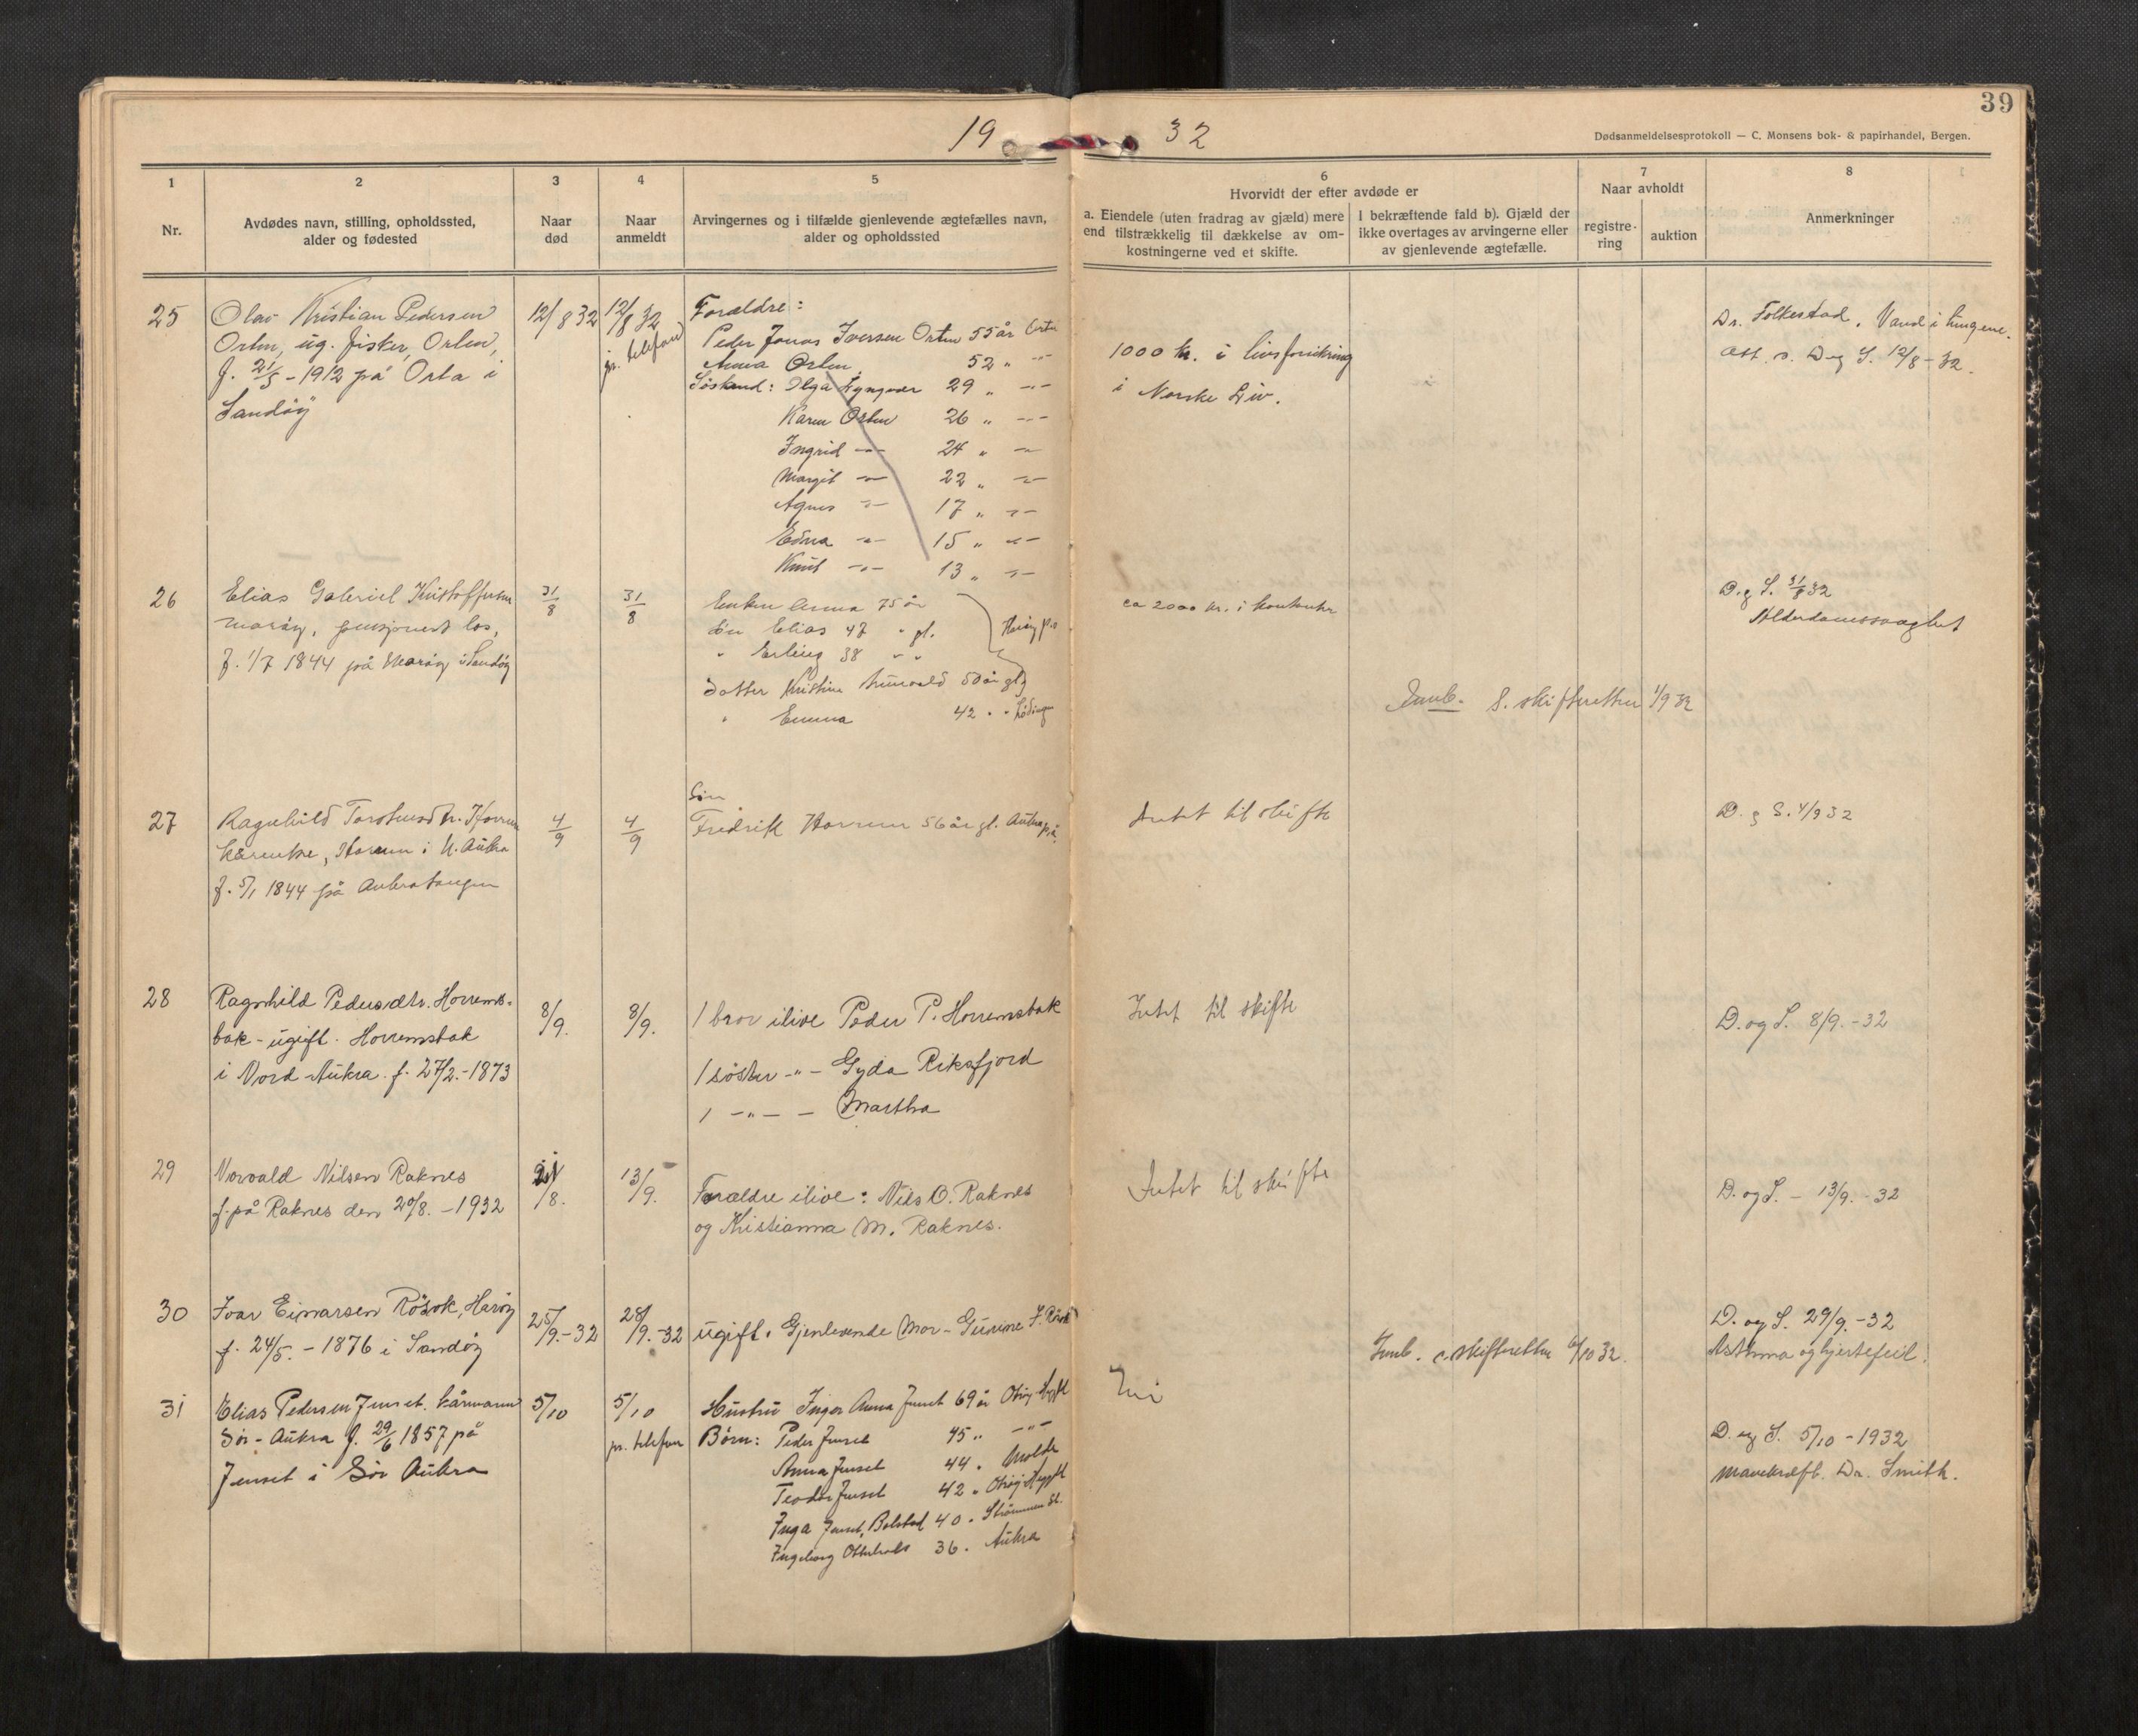 39
19 32
Dødsanmeldelsesprotokoll — C. Monsens bok- & papirhandel, Bergen.
1 2 3 4 5 6 7 8
Nr.
Avdødes navn, stilling, opholdssted,
alder og fødested
Naar
død
Naar
anmeldt
Arvingernes og i tilfælde gjenlevende ægtefælles navn,
alder og opholdssted
Hvorvidt der efter avdøde er
a. Eiendele (uten fradrag av gjæld) mere
end tilstrækkelig til dækkelse av om-
kostningerne ved et skifte.
I bekræftende fald b). Gjæld der
ikke overtages av arvingerne eller
av gjenlevende ægtefælle.
Naar avholdt
registre-
ring
auktion
Anmerkninger
25
Olav Kristian Pedersen
Orten, ug. fisker, Orten,
f. 21/5 - 1912 på Orta i
Sandöy
12/8 32
12/8 32
pr. telefon
Forældre:
Peder Jonas Iversen Orten 55 år Orta
Anna Orten 52 " -"-
Söskend: Olga Lyngvær 29 " -"-
Karen Orten 26 " -"-
Ingrid -"- 24 " -"-
Margit -"- 22 " -"-
Agnes -"- 17 " -"-
Edna -"- 15 " -"-
Knut -"- 13 " -"-
1000 kr. i livsforsikring
i Norske Liv.
Dr. Folkestad. Vand i lungene.
Att. s. D og S. 12/8 - 32.
26
Elias Gabriel Kristoffersen
Maröy, pensjonert los,
f. 1/7 1844 på Maröy i Sandöy
31/8
31/8
Enken Anna 75 år
sön Elias 47 " gl.
" Erling 38 " "
Datter Kristine 50 år gl
" Emma 42 " " Lödingen
ca 2000 kr. i kontanter
D. g S. 31/8 32
Alderdomssvaghet
Innb. S. skifteretten 1/9 32
27
Ragnhild Torstensdtr. Horrem
kårenke, Horem i N. Aukra
f. 5/1 1844 på Aukratangen
4/9
4/9
Sön
Fredrik Horrem 56 år gl. Aukra p.å.
Intet til skifte
D. g S. 4/9 32
28
Ragnhild Pedersdtr. Horrems-
bak - ugift. Horremsbak
i Nord-Aukra. f. 27/2. - 1873
8/9.
8/9.
1 bror ilive Peder P. Horremsbak
1 söster -"- Gyda Riksfjord
1 -"- - Martha
Intet til skifte
D. og S. 8/9. - 32
29
Norvald Nilsen Raknes
f. på Raknes den 20/8. - 1932
/8.
13/9.
Forældre ilive: Nils O. Raknes
og Kristianna M. Raknes.
Intet til skifte
D. og S. - 13/9. - 32
30
Ivar Einarsen Rösok, Haröy
f. 24/5. - 1876 i Sandöy
25/9. - 32
28/9. - 32
ugift. Gjenlevende Mor - Gurine I. Rösok
Innb. s. skifteretten 6/10 32.
D. og S. 29/9. - 32
Asthma og hjertefeil.
31
Elias Pedersen Jenset. kårmann
Sör-Aukra f. 29/6 1857 på
Jenset i Sör Aukra
5/10
5/10
pr. telefon
Hustru Inger Anna Jenset 69 år Otröy
Börn: Peder Jenset 45 " -"-
Anna Jenset 44 " Molde
Teodor Jenset 42 " Otröy
Inga Jenset, Bolstad 40 " Strömmen St.
Ingeborg Otterhals 36 " Aukra
Nei
D. og S. 5/10 - 1932
Mavekræft. Dr. Smith.